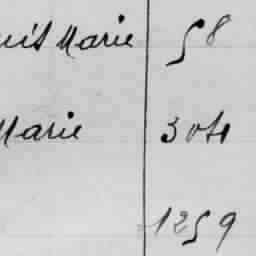 Marie 58
Marie 304
1259